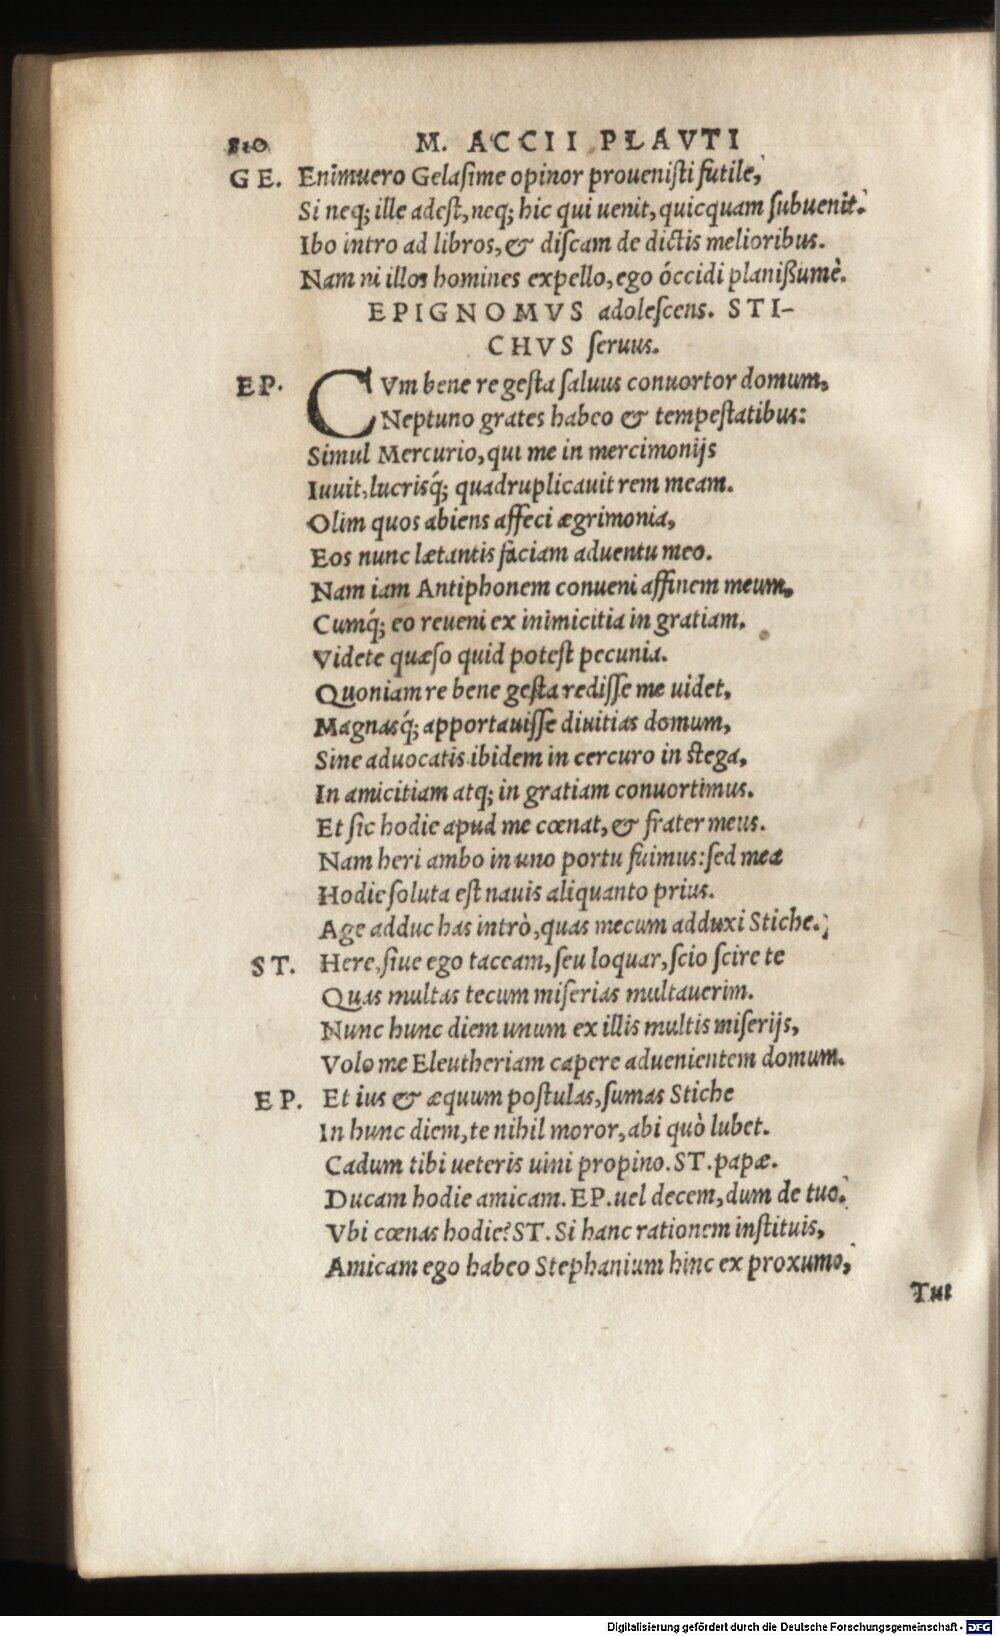 810 M. ACCII PLAVTI
GE. Enimuero Gelasime opinor prouenisti futile,
Si neq; ille adest, neq; hic qui uenit, quicquam subuenit.
Ibo intro ad libros, & discam de dictis melioribus.
Nam ni illos homines expello, ego óccidi planißumè.
EPIGNOMVS adolescens. STI-
CHVS seruus.
EP. CVm bene re gesta saluus conuortor domum,
Neptuno grates habeo & tempestatibus:
Simul Mercurio, qui me in mercimonijs
Iuuit, lucrisq́; quadruplicauit rem meam.
Olim quos abiens affeci ægrimonia,
Eos nunc lætantis faciam aduentu meo.
Nam iam Antiphonem conueni affinem meum,
Cumq́; eo reueni ex inimicitia in gratiam.
Videte quæso quid potest pecunia.
Quoniam re bene gesta redisse me uidet,
Magnasq́; apportauisse diuitias domum,
Sine aduocatis ibidem in cercuro in stega,
In amicitiam atq; in gratiam conuortimus.
Et sic hodie apud me cœnat, & frater meus.
Nam heri ambo in uno portu fuimus: sed mea
Hodie soluta est nauis aliquanto prius.
Age adduc has intrò, quas mecum adduxi Stiche.
ST. Here, siue ego taceam, seu loquar, scio scire te
Quas multas tecum miserias multauerim.
Nunc hunc diem unum ex illis multis miserijs,
Volo me Eleutheriam capere aduenientem domum.
EP. Et ius & æquum postulas, sumas Stiche
In hunc diem, te nihil moror, abi quò lubet.
Cadum tibi ueteris uini propino. ST. papæ.
Ducam hodie amicam. EP. uel decem, dum de tuo.
Vbi cœnas hodie? ST. Si hanc rationem instituis,
Amicam ego habeo Stephanium hinc ex proxumo,
Tui
Digitalisierung gefördert durch die Deutsche Forschungsgemeinschaft - DFG